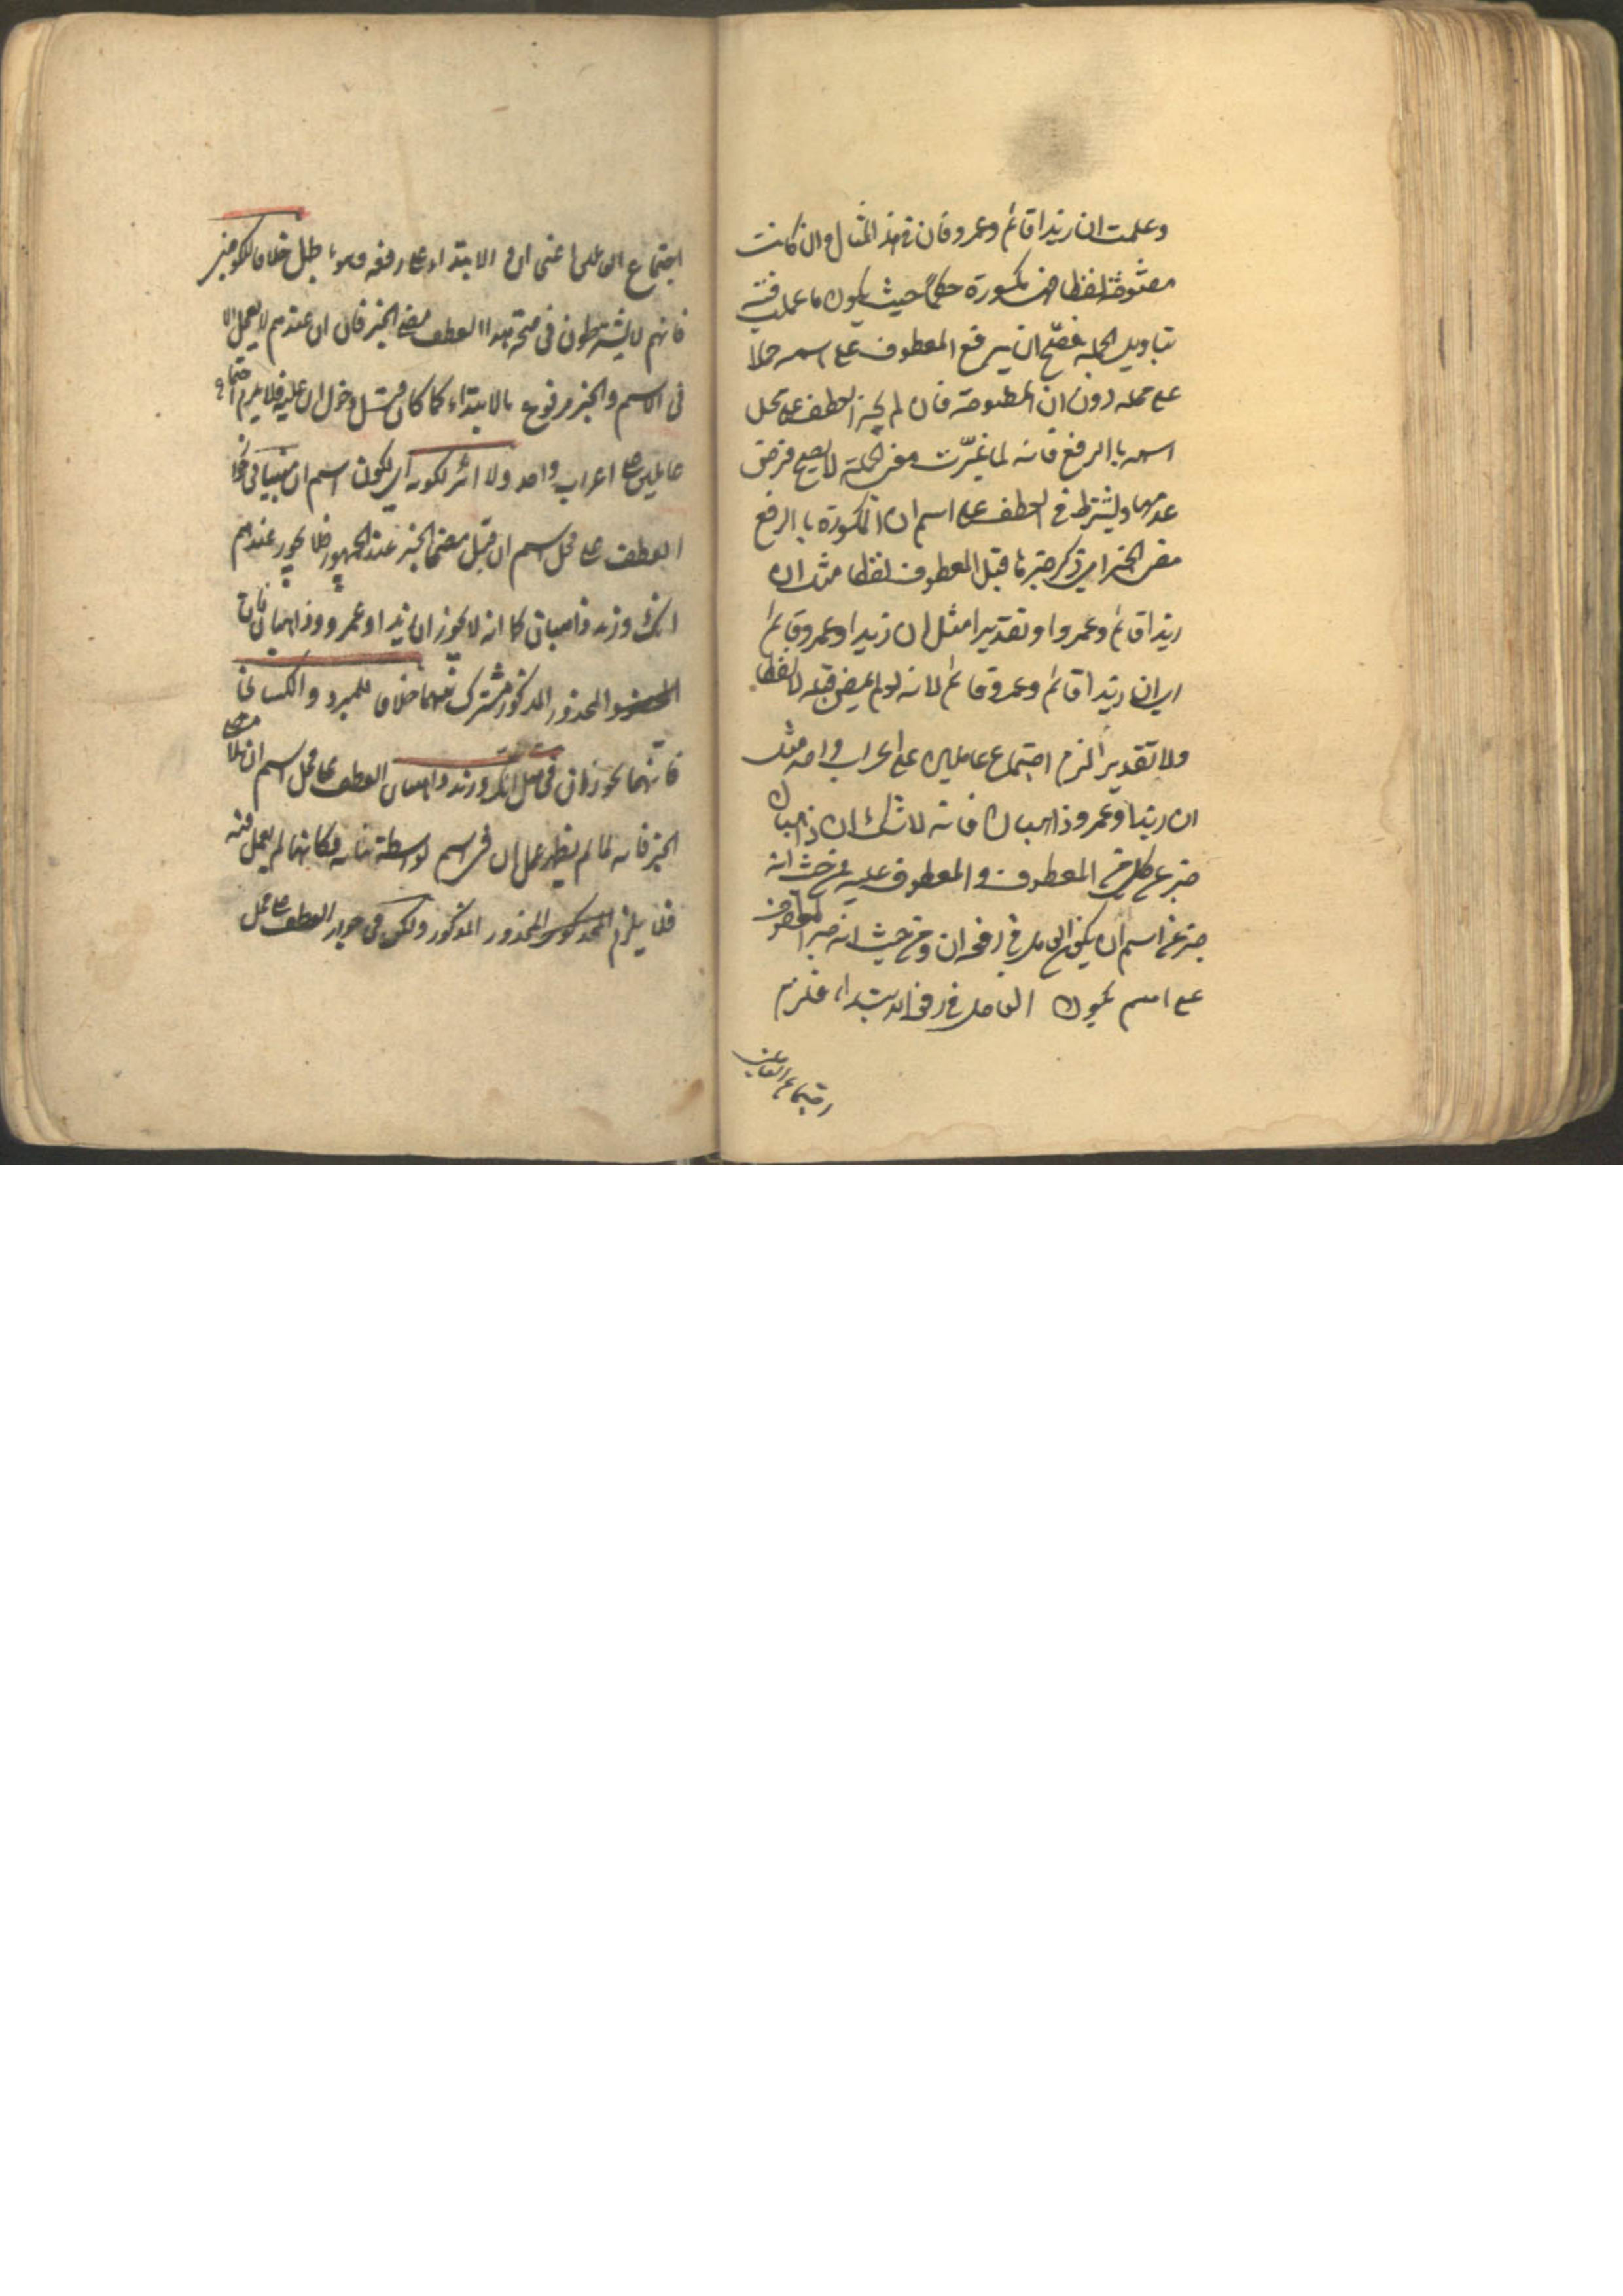 وعلمت ان زيدا قائم وعمرو فان في هذ المثال وان كانت
مفتوحة لفظا فهي مكسورة حكما حيث يكون ما عملت فيه
بتاويل الجملة فصح ان يرفع المعطوف على اسمه حملا
على محله دون ان المفتوحة فان لم يجز العطف على محل
اسمه با الرفع فانه لما غيرت معنى الجملة لا يصح فرض
عدمها ويشترط في العطف على اسم ان المكسورة با الرفع
مضى الخبر اي ذكر خبر ما قبل المعطوف لفظا مثل ان
زيدا قائم وعمرو او تقديرا مثل ان زيدا وعمرو قائم
اي ان زيدا قائم وعمرو قائم لانه لو لم يمض قبله لا لفظا
ولا تقديرا لزم اجتماع عاملين على اعراب واحد مثل
ان زيدا وعمرو ذاهبان فانه لا شك ان ذاهبان
خبر عن كل من المعطوف والمعطوف عليه فمن حيث انه
خبر عن اسم ان يكون العامل في رفعه ان ومن حيث انه خبر المعطوف
على اسم يكون العامل في رفعه الابتداء فلزم
اجتماع العاملين
اجتماع العاملين اعنى ان والابتداء على رفعه وهو باطل خلافا للكوفيين
فانهم لا يشترطون في صحة هذا العطف مضى الخبر فان ان عندهم لا يعمل الا
في الاسم والخبر مرفوع بالابتداء كما كان قبل دخول ان عليه فلا يلزم اجتماع
عاملين على اعراب واحد ولا اثر لكونه اى لكون اسم ان مبنيا في جواز
العطف على محل اسم ان قبل مضى الخبر عند الجمهور فلا يجوز عندهم
انك وزيد ذاهبان كما انه لا يجوز ان زيدا وعمرو ذاهبان فان
المحذور المذكور مشترك بينهما خلافا للمبرد والكسائى
فانهما يجوزان في مثل انك وزيد ذاهبان العطف على محل اسم ان بلا مضى
الخبر فانه لما لم يظهر عمل ان في اسم بواسطة بنائه فكانها لم يعمل فيه
فلا يلزم المحذور المذكور ولكن في جواز العطف على محل